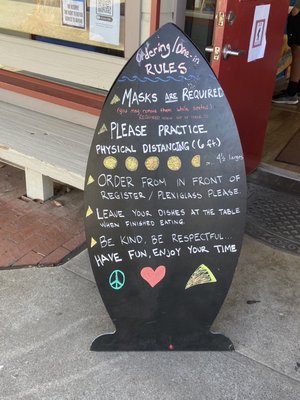 Ordering/Dine-in
RULES
MASKS ARE REQUIRED
(you may remove them while seated)
REQUIRED WHEN
PLEASE PRACTICE
PHYSICAL DISTANCING (6 ft)
4½ larges
ORDER FROM IN FRONT OF
REGISTER / PLEXIGLASS PLEASE.
LEAVE YOUR DISHES AT THE TABLE
WHEN FINISHED EATING
BE KIND, BE RESPECTFUL...
HAVE FUN, ENJOY YOUR TIME